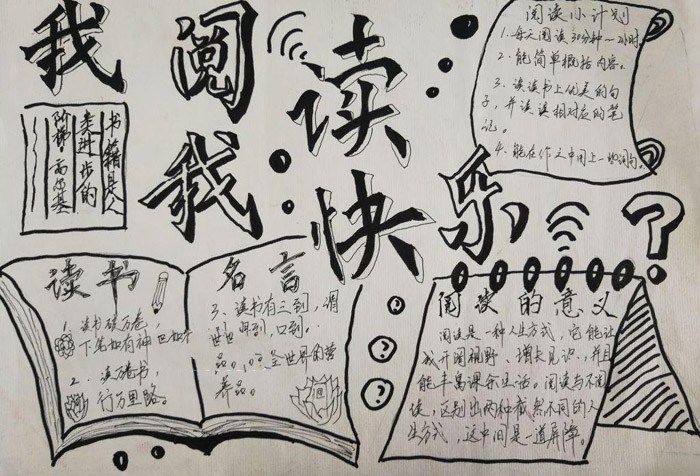 我阅读
我快乐
书籍是人
类进步的
阶梯。高尔基
阅读小计划
1、每天阅读30分种~1小时
2、能简单概括内容。
3、读读书上优美的句
子，并读读相对应的笔
记。
4、能在作文中用上一些词句。
读书名言
1、读书破万卷，
下笔如有神
2、读万卷书，
行万里路。
3、读书有三到，谓
眼到，口到，
全世界的营
养品。
阅读的意义
阅读是一种人生方式，它能让
我开阔视野，增长见识，并且
能丰富课余生活。阅读与不阅
读，区别出两种截然不同的人
生方式，这中间是一道屏障。